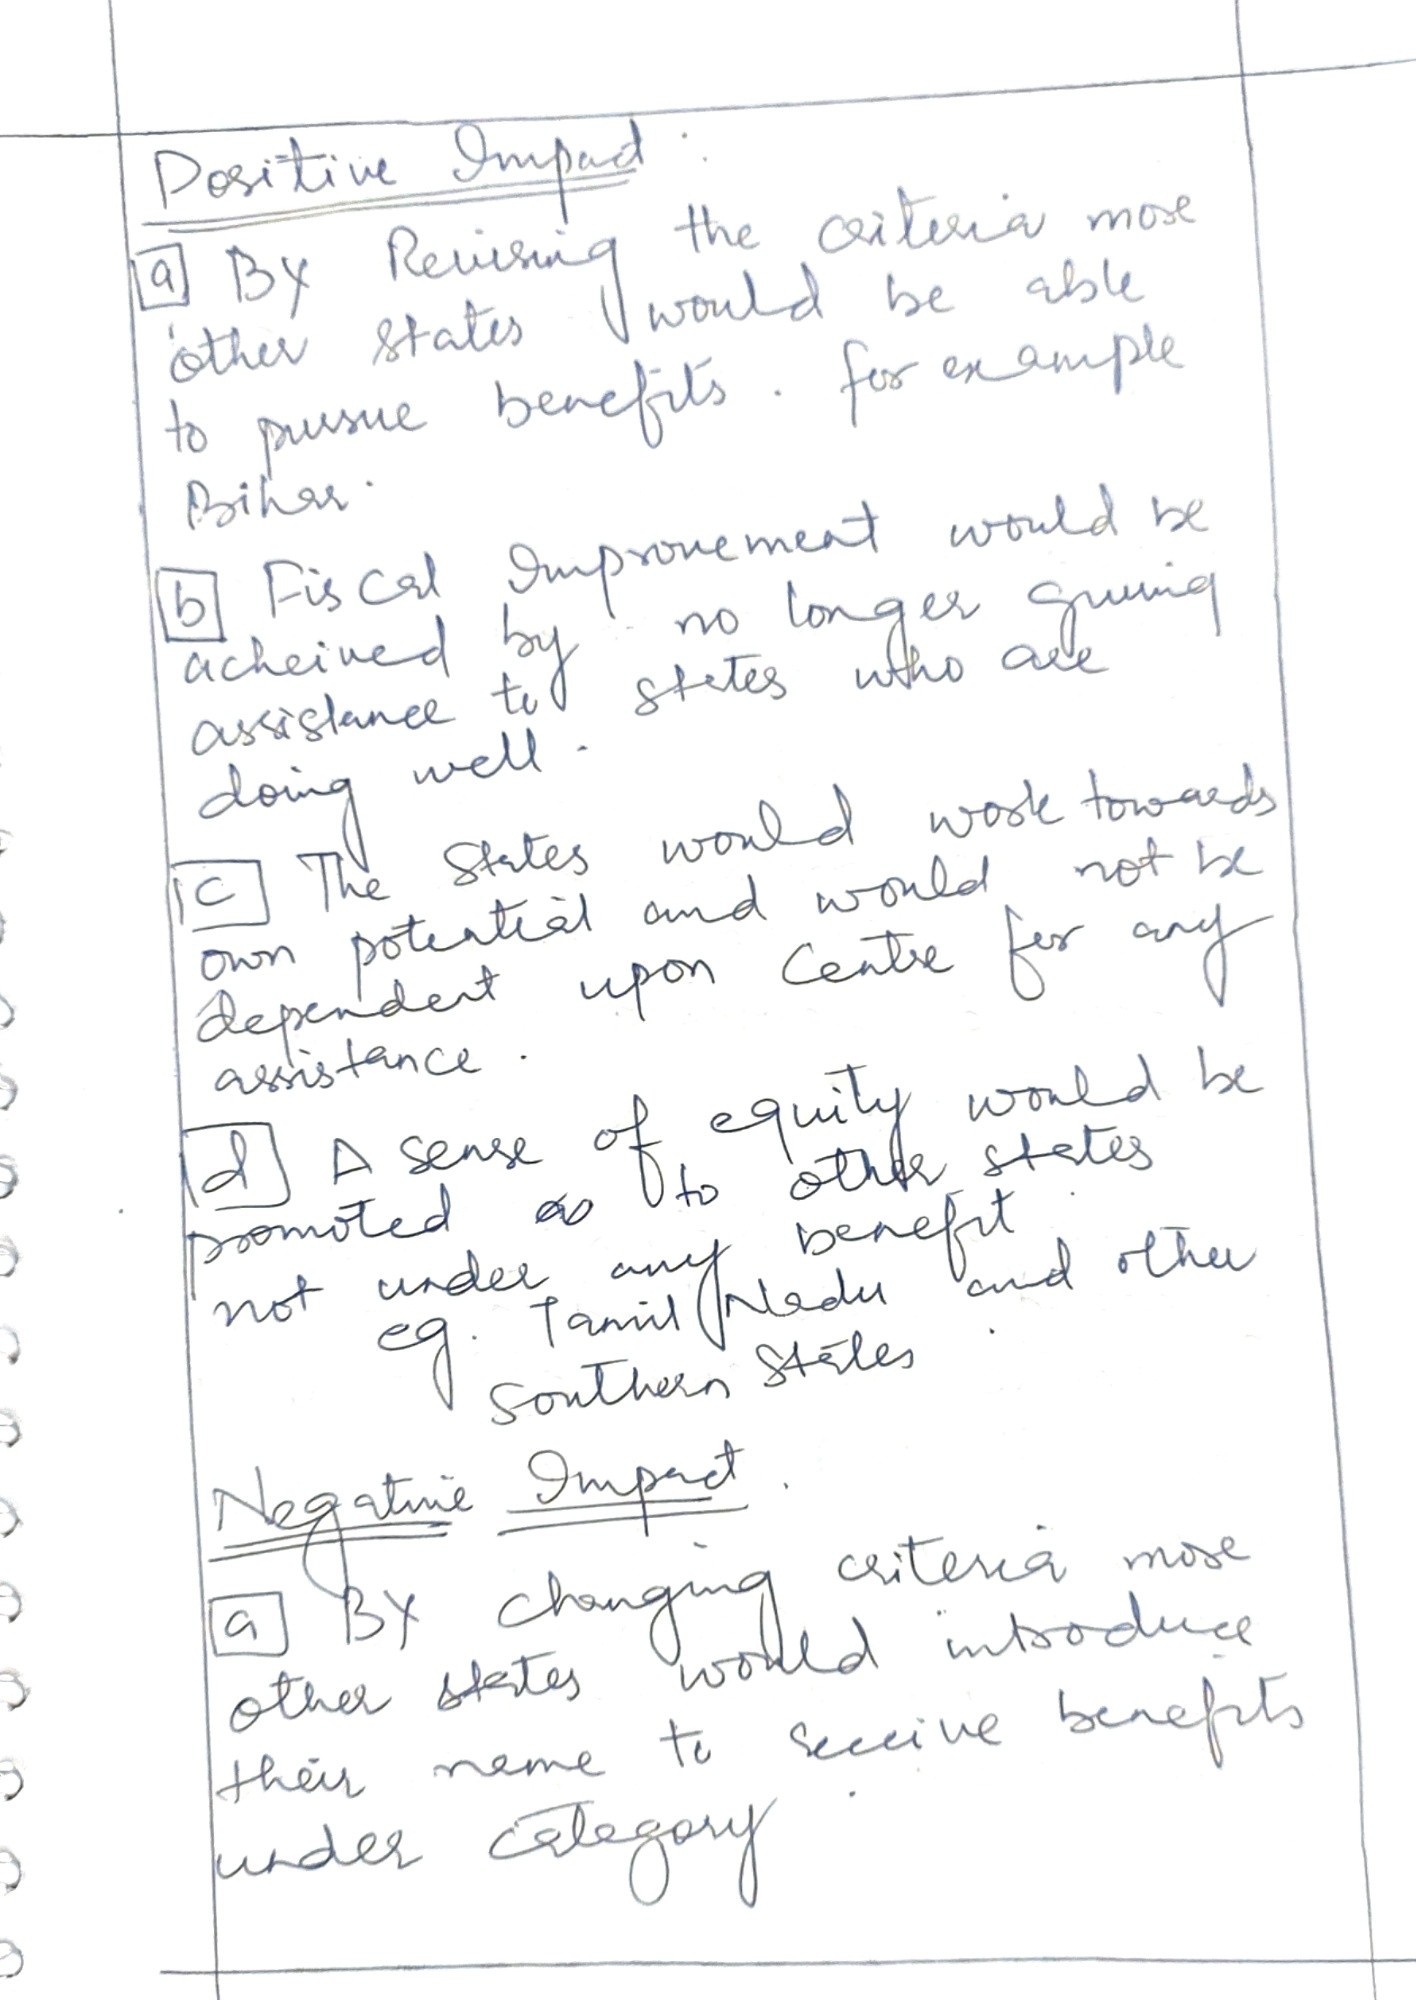 Positive Impact :
a By Revising the criteria more
other states would be able
to pursue benefits. for example
Bihar.
b Fiscal Improvement would be
acheived by no longer giving
assistance to states who are
doing well.
c The States would work towards
own potential and would not be
dependent upon Centre for any
assistance.
d A sense of equity would be
promoted as to other states
not under any benefit.
eg. Tamil Nadu and other
Southern States.
Negative Impact.
a By changing criteria more
other states would introduce
their name to receive benefits
under category.